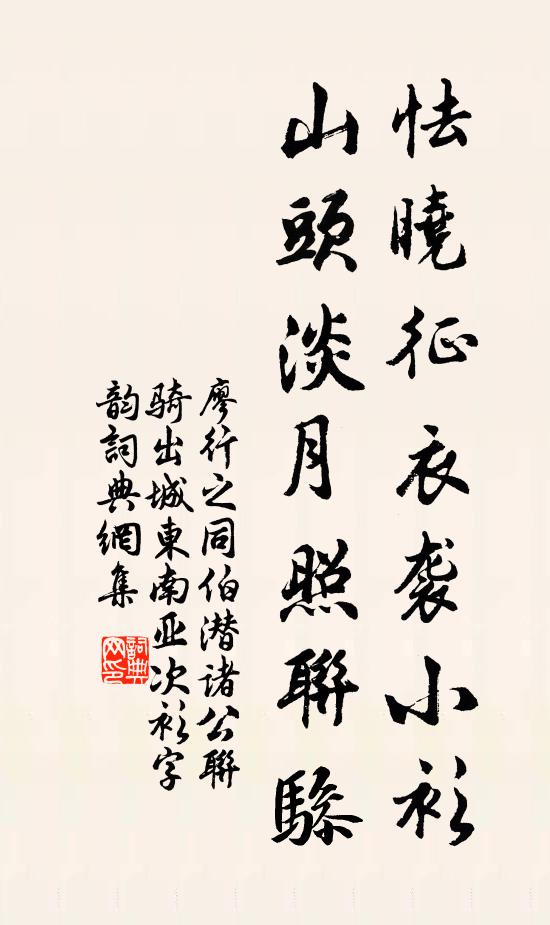 怯曉征衣袭小衫
山頭淡月照聯驂
廖行之同伯潜诸公聯
骑出城東南亚次衫字
韵詞典網集
詞典网印